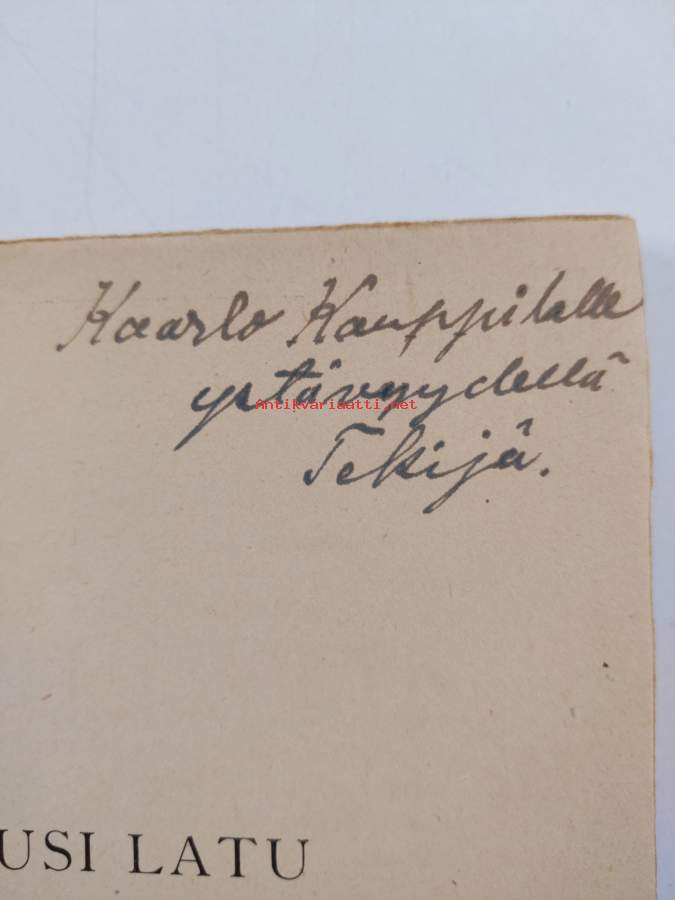 Kaarlo Kauppilalle
ystävyydellä
Antikvariaatti.net
Tekijä.
USI LATU